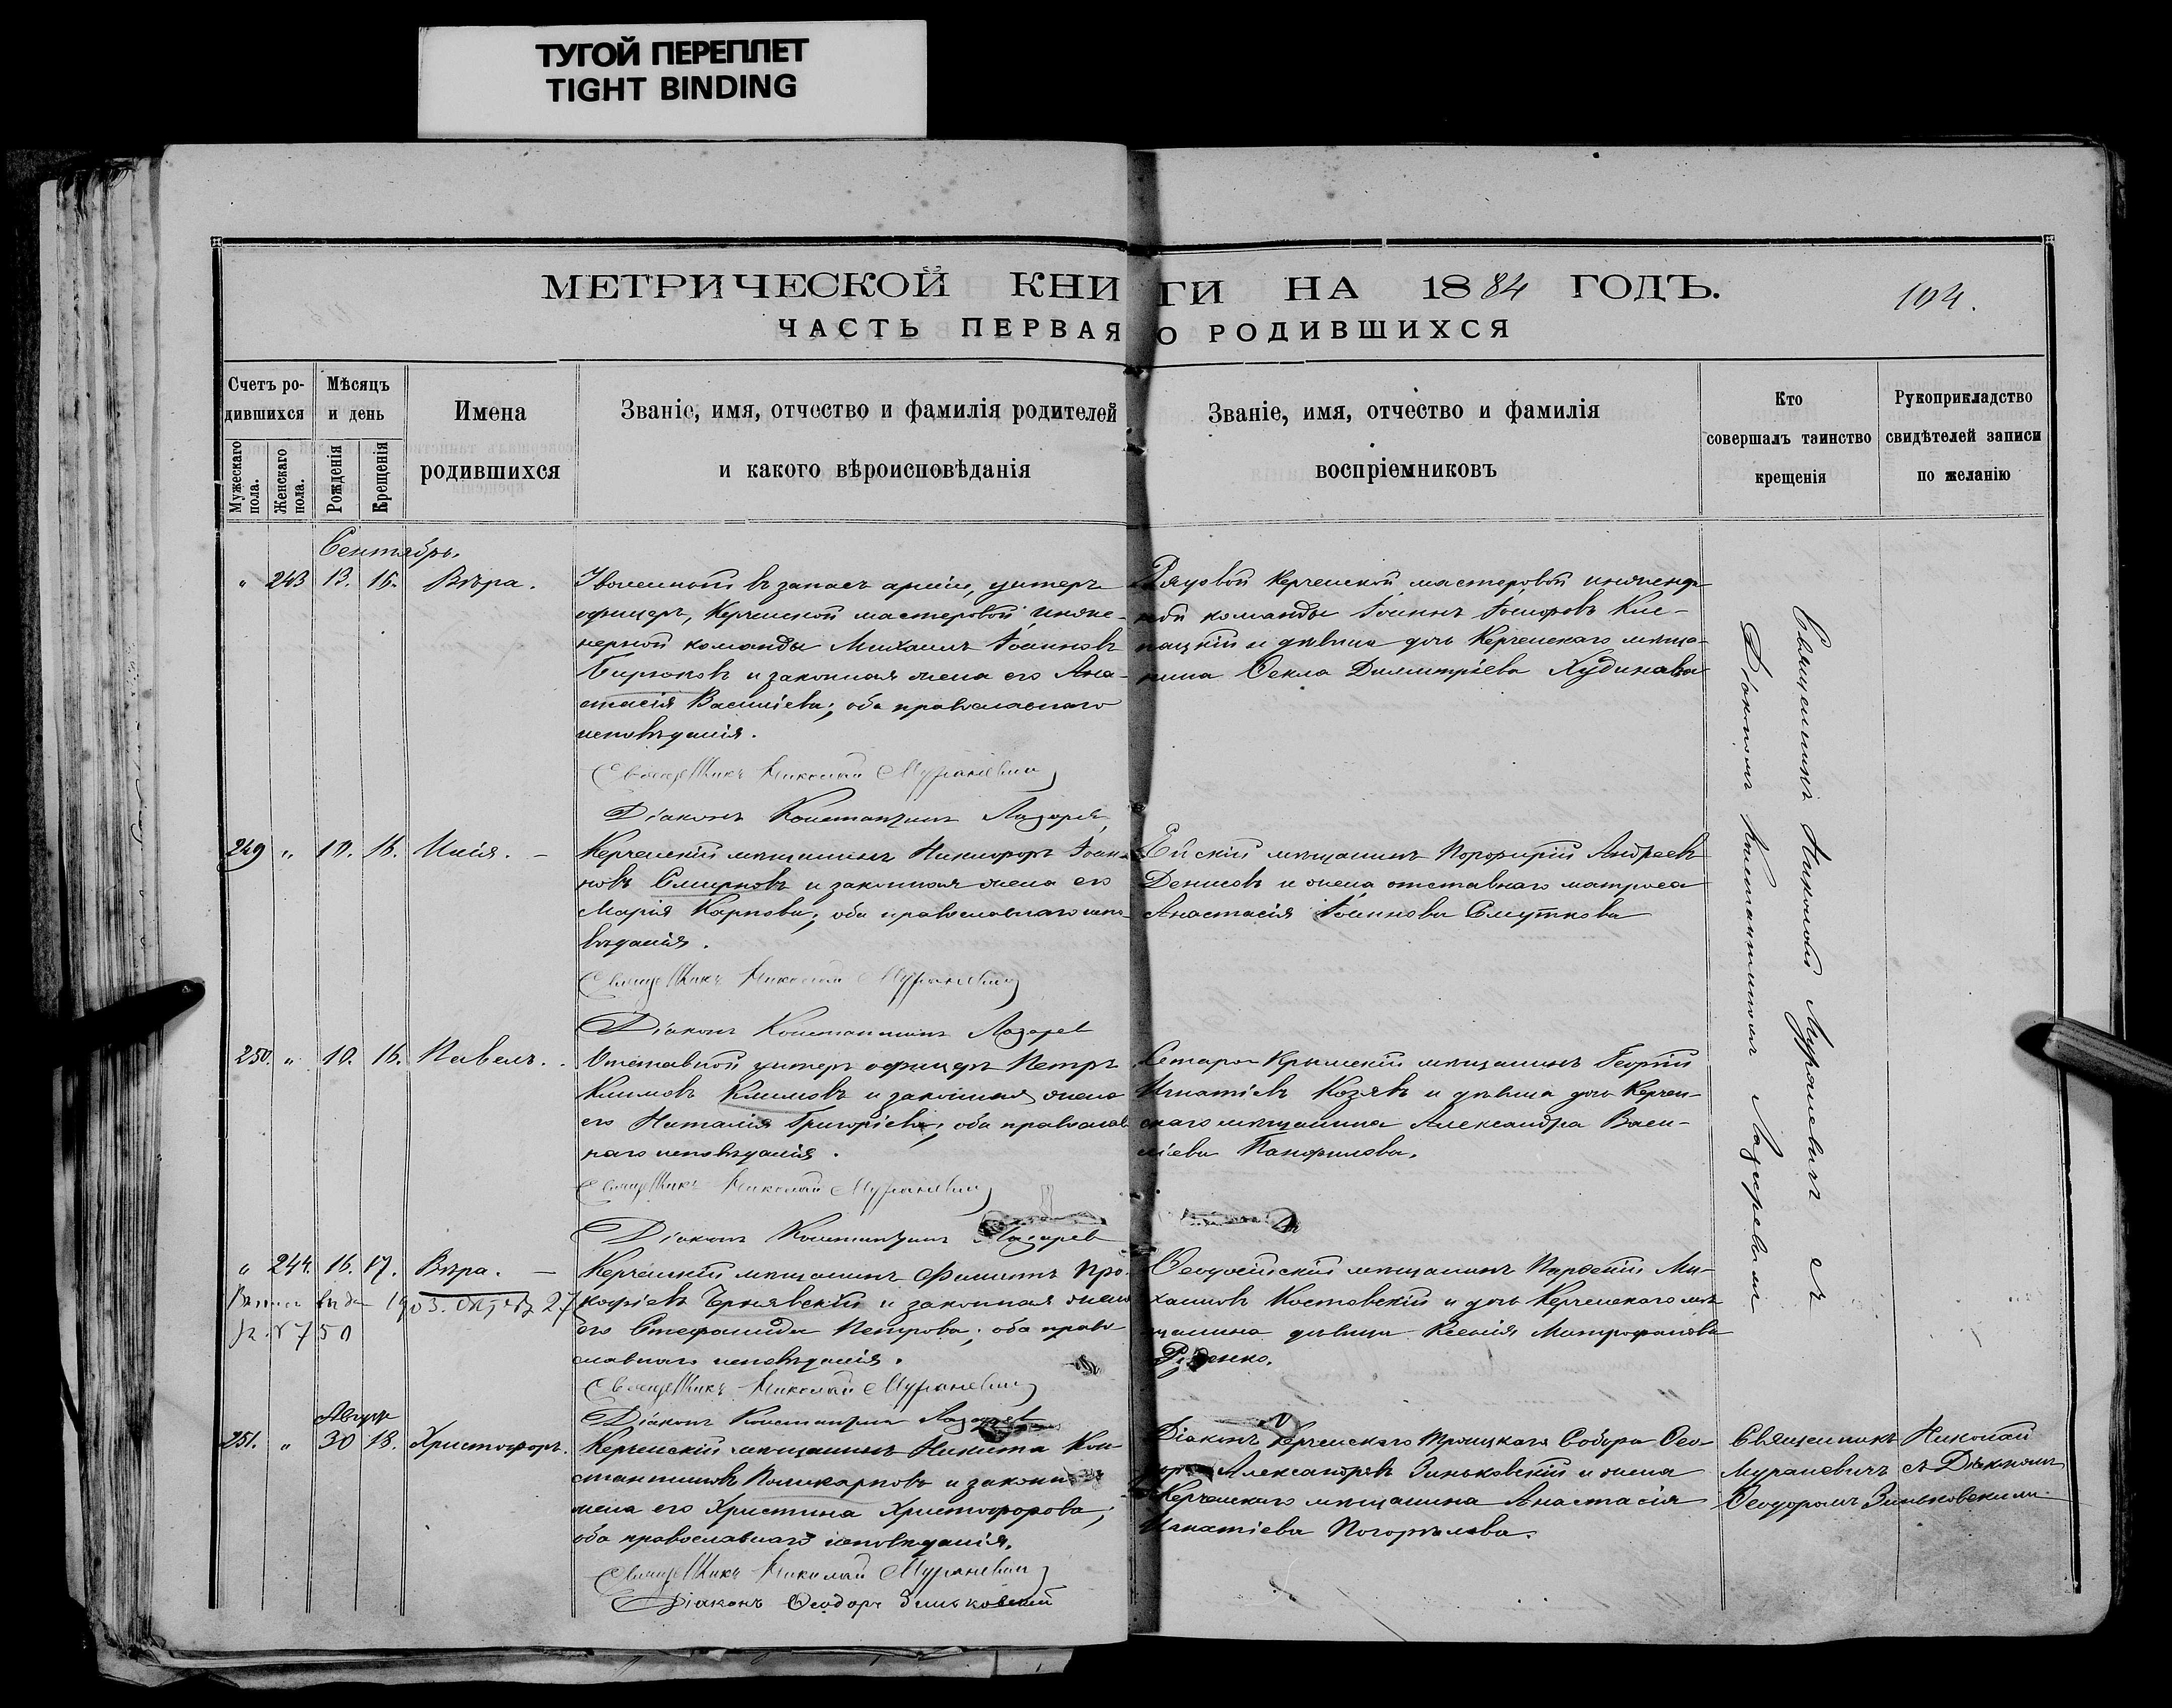 ТУГОЙ ПЕРЕПЛЕТ
TIGHT BINDING
МЕТРИЧЕСКОЙ КНИГИ НА 1884 ГОДЪ.
104.
ЧАСТЬ ПЕРВАЯ О РОДИВШИХСЯ
Счетъ родившихся
Мужескаго пола.
Женскаго пола.
Мѣсяцъ и день
Рожденія
Крещенія
Имена родившихся
Званіе, имя, отчество и фамилія родителей
и какого вѣроисповѣданія
Званіе, имя, отчество и фамилія
воспріемниковъ
Кто
совершалъ таинство
крещенія
Рукоприкладство
свидѣтелей записи
по желанію
Сентябрь.
" 243 13. 16. Вѣра.
Уволенный въ запасъ арміи, унтеръ
офицеръ, Керченской мастеровой инже-
нерной команды Михаилъ Іоанновъ
Бирюковъ и законная жена его Ана-
стасія Василіева; оба православнаго
исповѣданія.
Священникъ Николай Мураневичъ
Діаконъ Константинъ Лазарев
Рядовой Керченской мастеровой инженер
ной команды Іоаннъ
и дѣвица дочь Керченскаго мѣща-
нина Ѳекла Димитріева Худинава
249 " 10. 16. Илія.
Керченскій мѣщанинъ Никифоръ Іоан-
новъ Смирновъ и законная жена его
Марія Карпова; оба православнаго испо-
вѣданія.
Священникъ Николай Мураневичъ
Діаконъ Константинъ Лазарев
Ейскій мѣщанинъ Порфирій Андреевъ
Денисовъ и жена отставнаго матроса
Анастасія Іоаннова Смуткова
250. " 10. 16. Павелъ.
Отставной унтеръ офицеръ Петръ
Климовъ Климовъ и законная жена
его Наталія Григоріева; оба православ
наго исповѣданія.
Священникъ Николай Мураневичъ
Діаконъ Константинъ Лазарев
Старо Крымскій мѣщанинъ Георгій
Игнатіевъ Козявъ и дѣвица дочь Керчен-
скаго мѣщанина Александра Васи-
ліева Панфилова.
" 244. 16. 17. Вѣра.
1903. 27
№ 750
Керченскій мѣщанинъ Филиппъ Про-
кофіевъ Чернявскій и законная жена
его Стефанида Петрова; оба право
славнаго исповѣданія.
Священникъ Николай Мураневичъ
Діаконъ Константинъ Лазарев
Ѳеодосійскій мѣщанинъ Парѳеній Ми-
хаиловъ Костовскій и дочь Керченскаго мѣ
щанина дѣвица Ксенія Митрофанова
Августъ
251. " 30 18. Христофоръ.
Керченскій мѣщанинъ Никита Кон-
стантиновъ Поликарповъ и законн
жена его Христина Христофорова;
оба православнаго исповѣданія.
Священникъ Николай Мураневичъ
Діаконъ Ѳеодоръ Зиньковскій
Діаконъ Керченскаго Троицкаго Собора Ѳео-
Александровъ Зиньковскій и жена
Керченскаго мѣщанина Анастасія
Игнатіева Погорѣлова.
Священникъ Николай Мураневичъ съ
Діакономъ Константиномъ Лазаревымъ
Священникъ Николай
Мураневичъ съ Діакономъ
Ѳеодоромъ Зиньковскимъ.